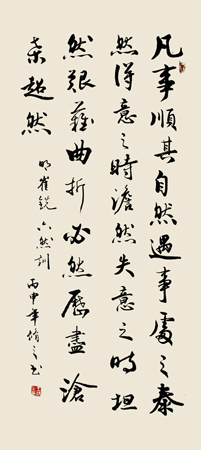 凡事順其自然遇事處之泰
然得意之時澹然失意之時坦
然艱難曲折必然歷盡滄
桒超然
明崔銑六然訓
丙申年之书